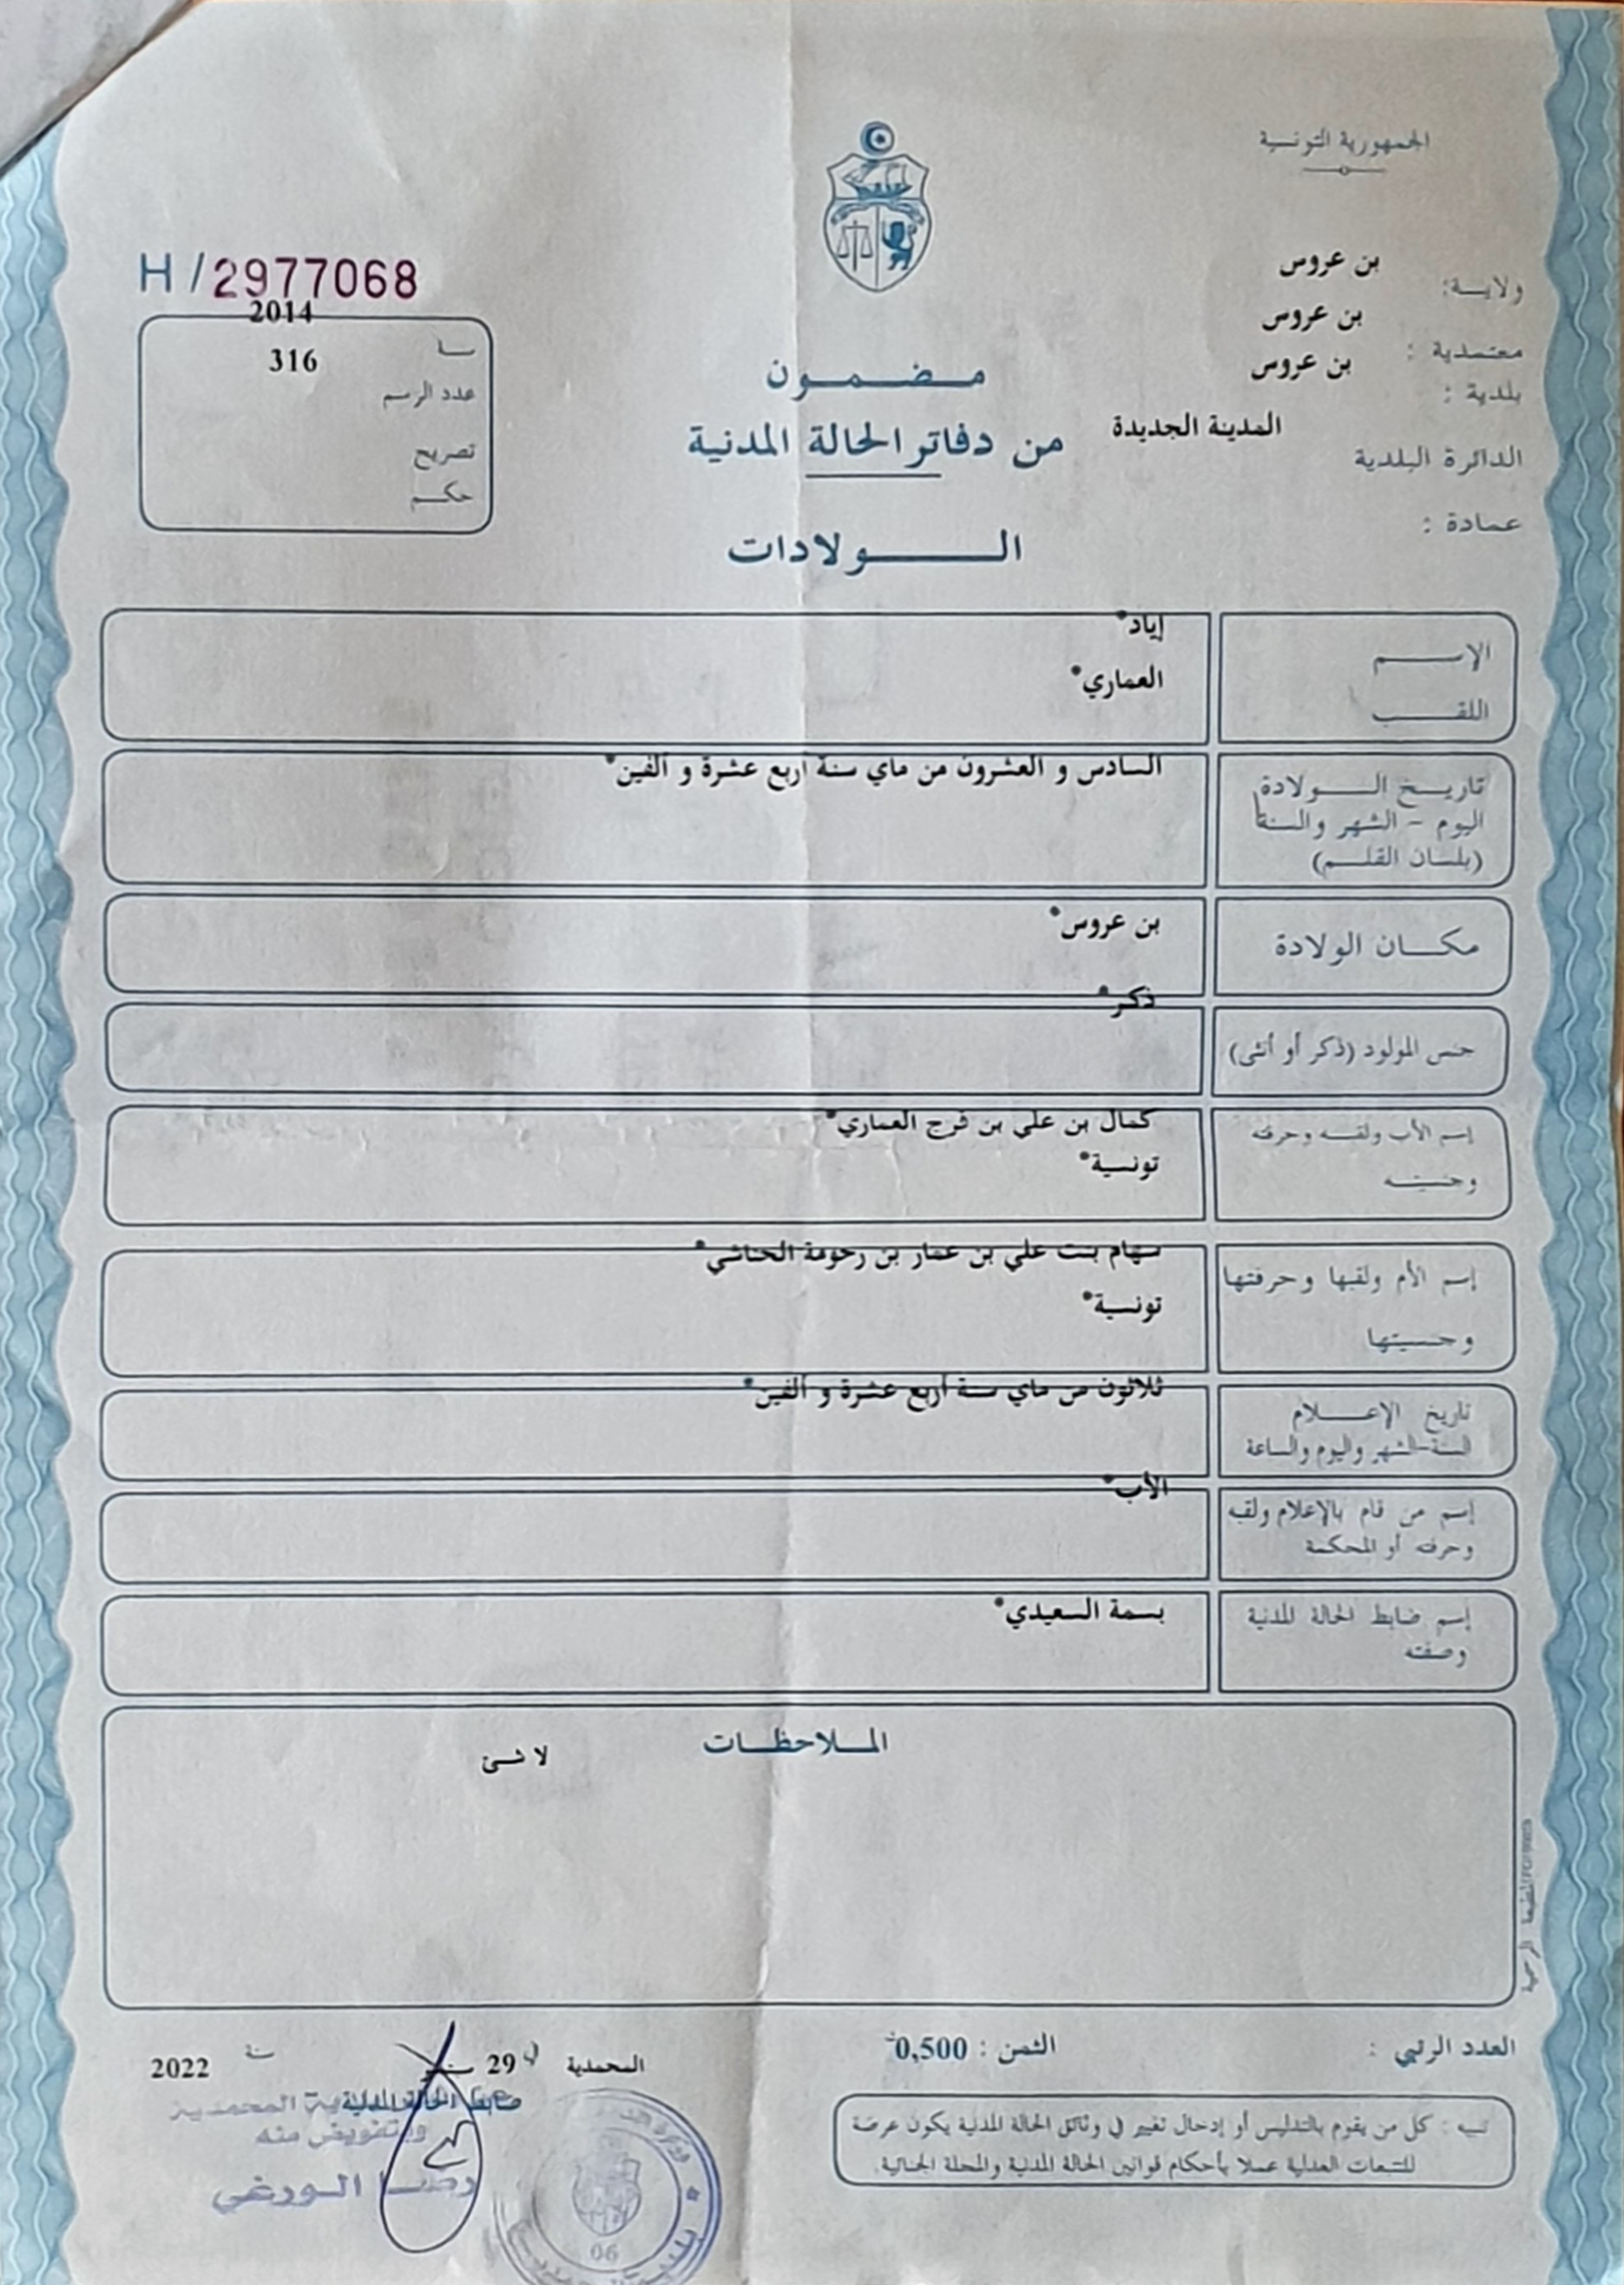 الجمهورية التونسية
H/2977068
ولاية: بن عروس
معتمدية : بن عروس
بلدية : بن عروس
الدائرة البلدية المدينة الجديدة
عمادة :
سنة 2014
عدد الرسم 316
تصريح
حكم
مضمون
من دفاتر الحالة المدنية
الولادات
الإسم إياد*
اللقب العماري*
تاريخ الولادة السادس و العشرون من ماي سنة أربع عشرة و ألفين*
اليوم - الشهر والسنة
(بلسان القلم)
مكان الولادة بن عروس*
جنس المولود (ذكر أو أنثى) ذكر*
إسم الأب ولقبه وحرفته كمال بن علي بن فرج العماري*
وجنسيته تونسية*
إسم الأم ولقبها وحرفتها سهام بنت علي بن عمار بن رحومة الحناشي*
وجنسيتها تونسية*
تاريخ الإعلام ثلاثون من ماي سنة أربع عشرة و ألفين*
السنة-الشهر واليوم والساعة
إسم من قام بالإعلام ولقبه الأب*
وحرفته أو المحكمة
إسم ضابط الحالة المدنية بسمة السعيدي*
وصفته
الملاحظات
لا شئ
المطبعة الرسمية
العدد الرتبي :
الثمن : 0,500
المحمدية
29
سنة 2022
ضابط الحالة المدنية
المحمدية
وبتفويض منه
رضا الورغي
06
تنبيه : كل من يقوم بالتدليس أو إدخال تغيير في وثائق الحالة المدنية يكون عرضة
للتتبعات العدلية عملا بأحكام قوانين الحالة المدنية والمجلة الجنائية.